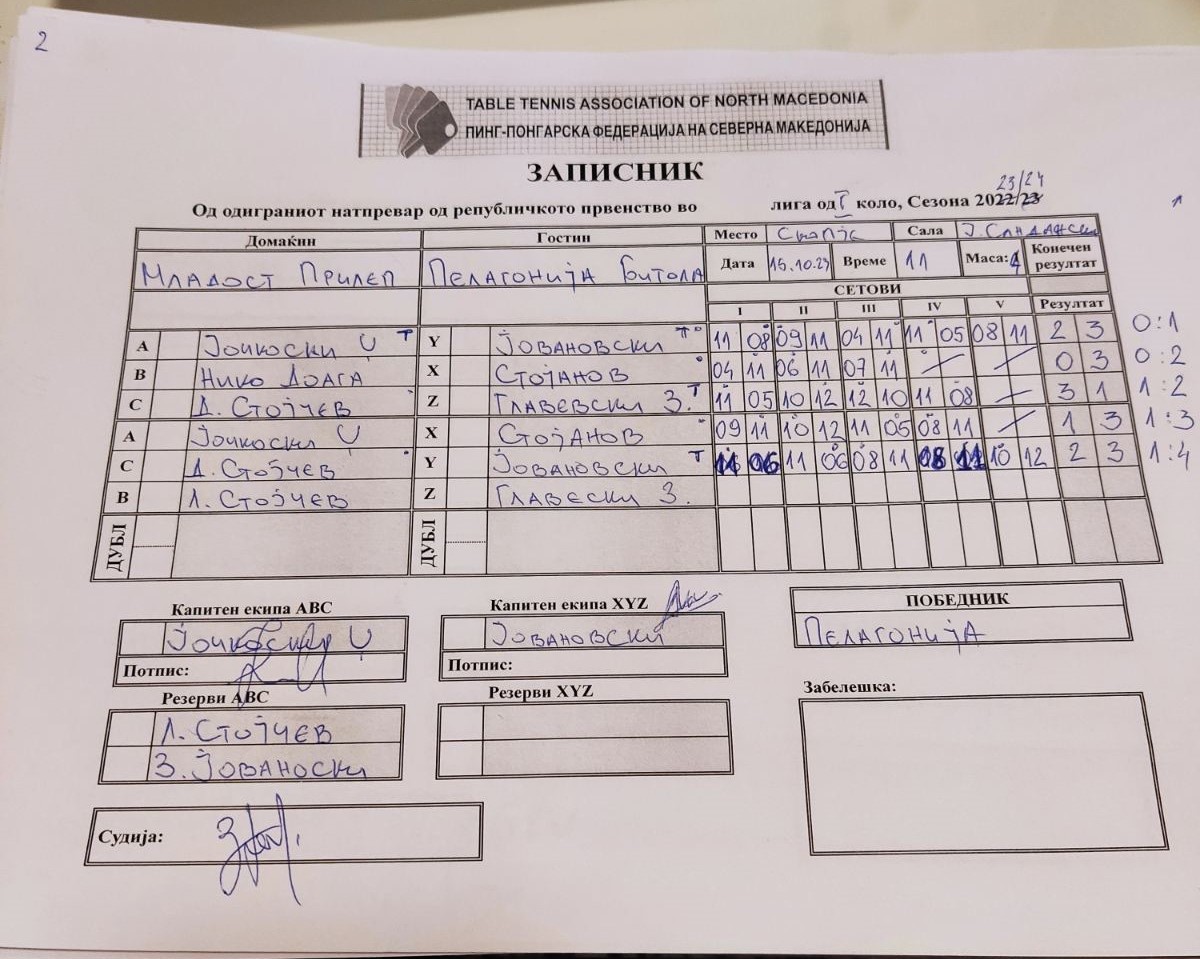 2
TABLE TENNIS ASSOCIATION OF NORTH MACEDONIA
ПИНГ-ПОНГАРСКА ФЕДЕРАЦИЈА НА СЕВЕРНА МАКЕДОНИЈА
ЗАПИСНИК
23/24
Од одиграниот натпревар од републичкото првенство во лига од I коло, Сезона 2022/23
Домаќин Гостин Место Скопје Сала Ј. Сандански
Младост Прилеп Пелагонија Битола Дата 15.10.23 Време 11 Маса: 4 Конечен резултат
СЕТОВИ
I II III IV V Резултат
A Јочкоски Џ T Y Јовановски T 11 08 09 11 04 11 11 05 08 11 2 3 0:1
B Нико Доага X Стојанов 04 11 06 11 07 11 0 3 0:2
C Д. Стојчев Z Главевски З. T 11 05 10 12 12 10 11 08 3 1 1:2
A Јочкоски Џ X Стојанов 09 11 10 12 11 05 08 11 1 3 1:3
C Д. Стојчев Y Јовановски T 06 11 06 08 11 08 11 10 12 2 3 1:4
B Л. Стојчев Z Главески З.
ДУБЛ ДУБЛ
Капитен екипа ABC Капитен екипа XYZ ПОБЕДНИК
Јочкоски Џ Јовановски Пелагонија
Потпис: Потпис:
Резерви ABC Резерви XYZ Забелешка:
Л. Стојчев
З. Јованоски
Судија: